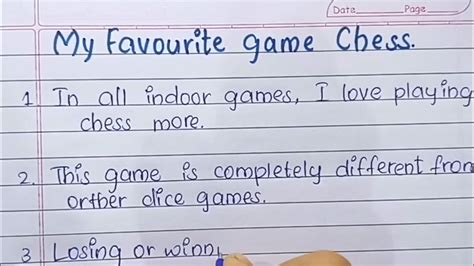 Date Page
My Favourite game Chess.
1. In all indoor games, I love playing
chess more.
2. This game is completely different from
orther dice games.
3 Losing or winn